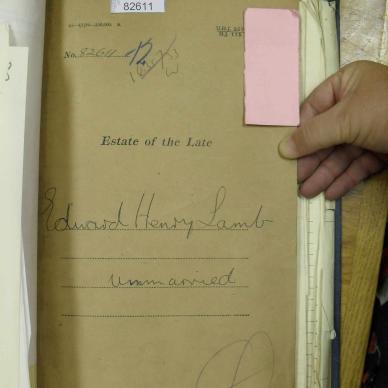 82611
No. 82611
Estate of the Late
Edward Henry Lamb
unmarried